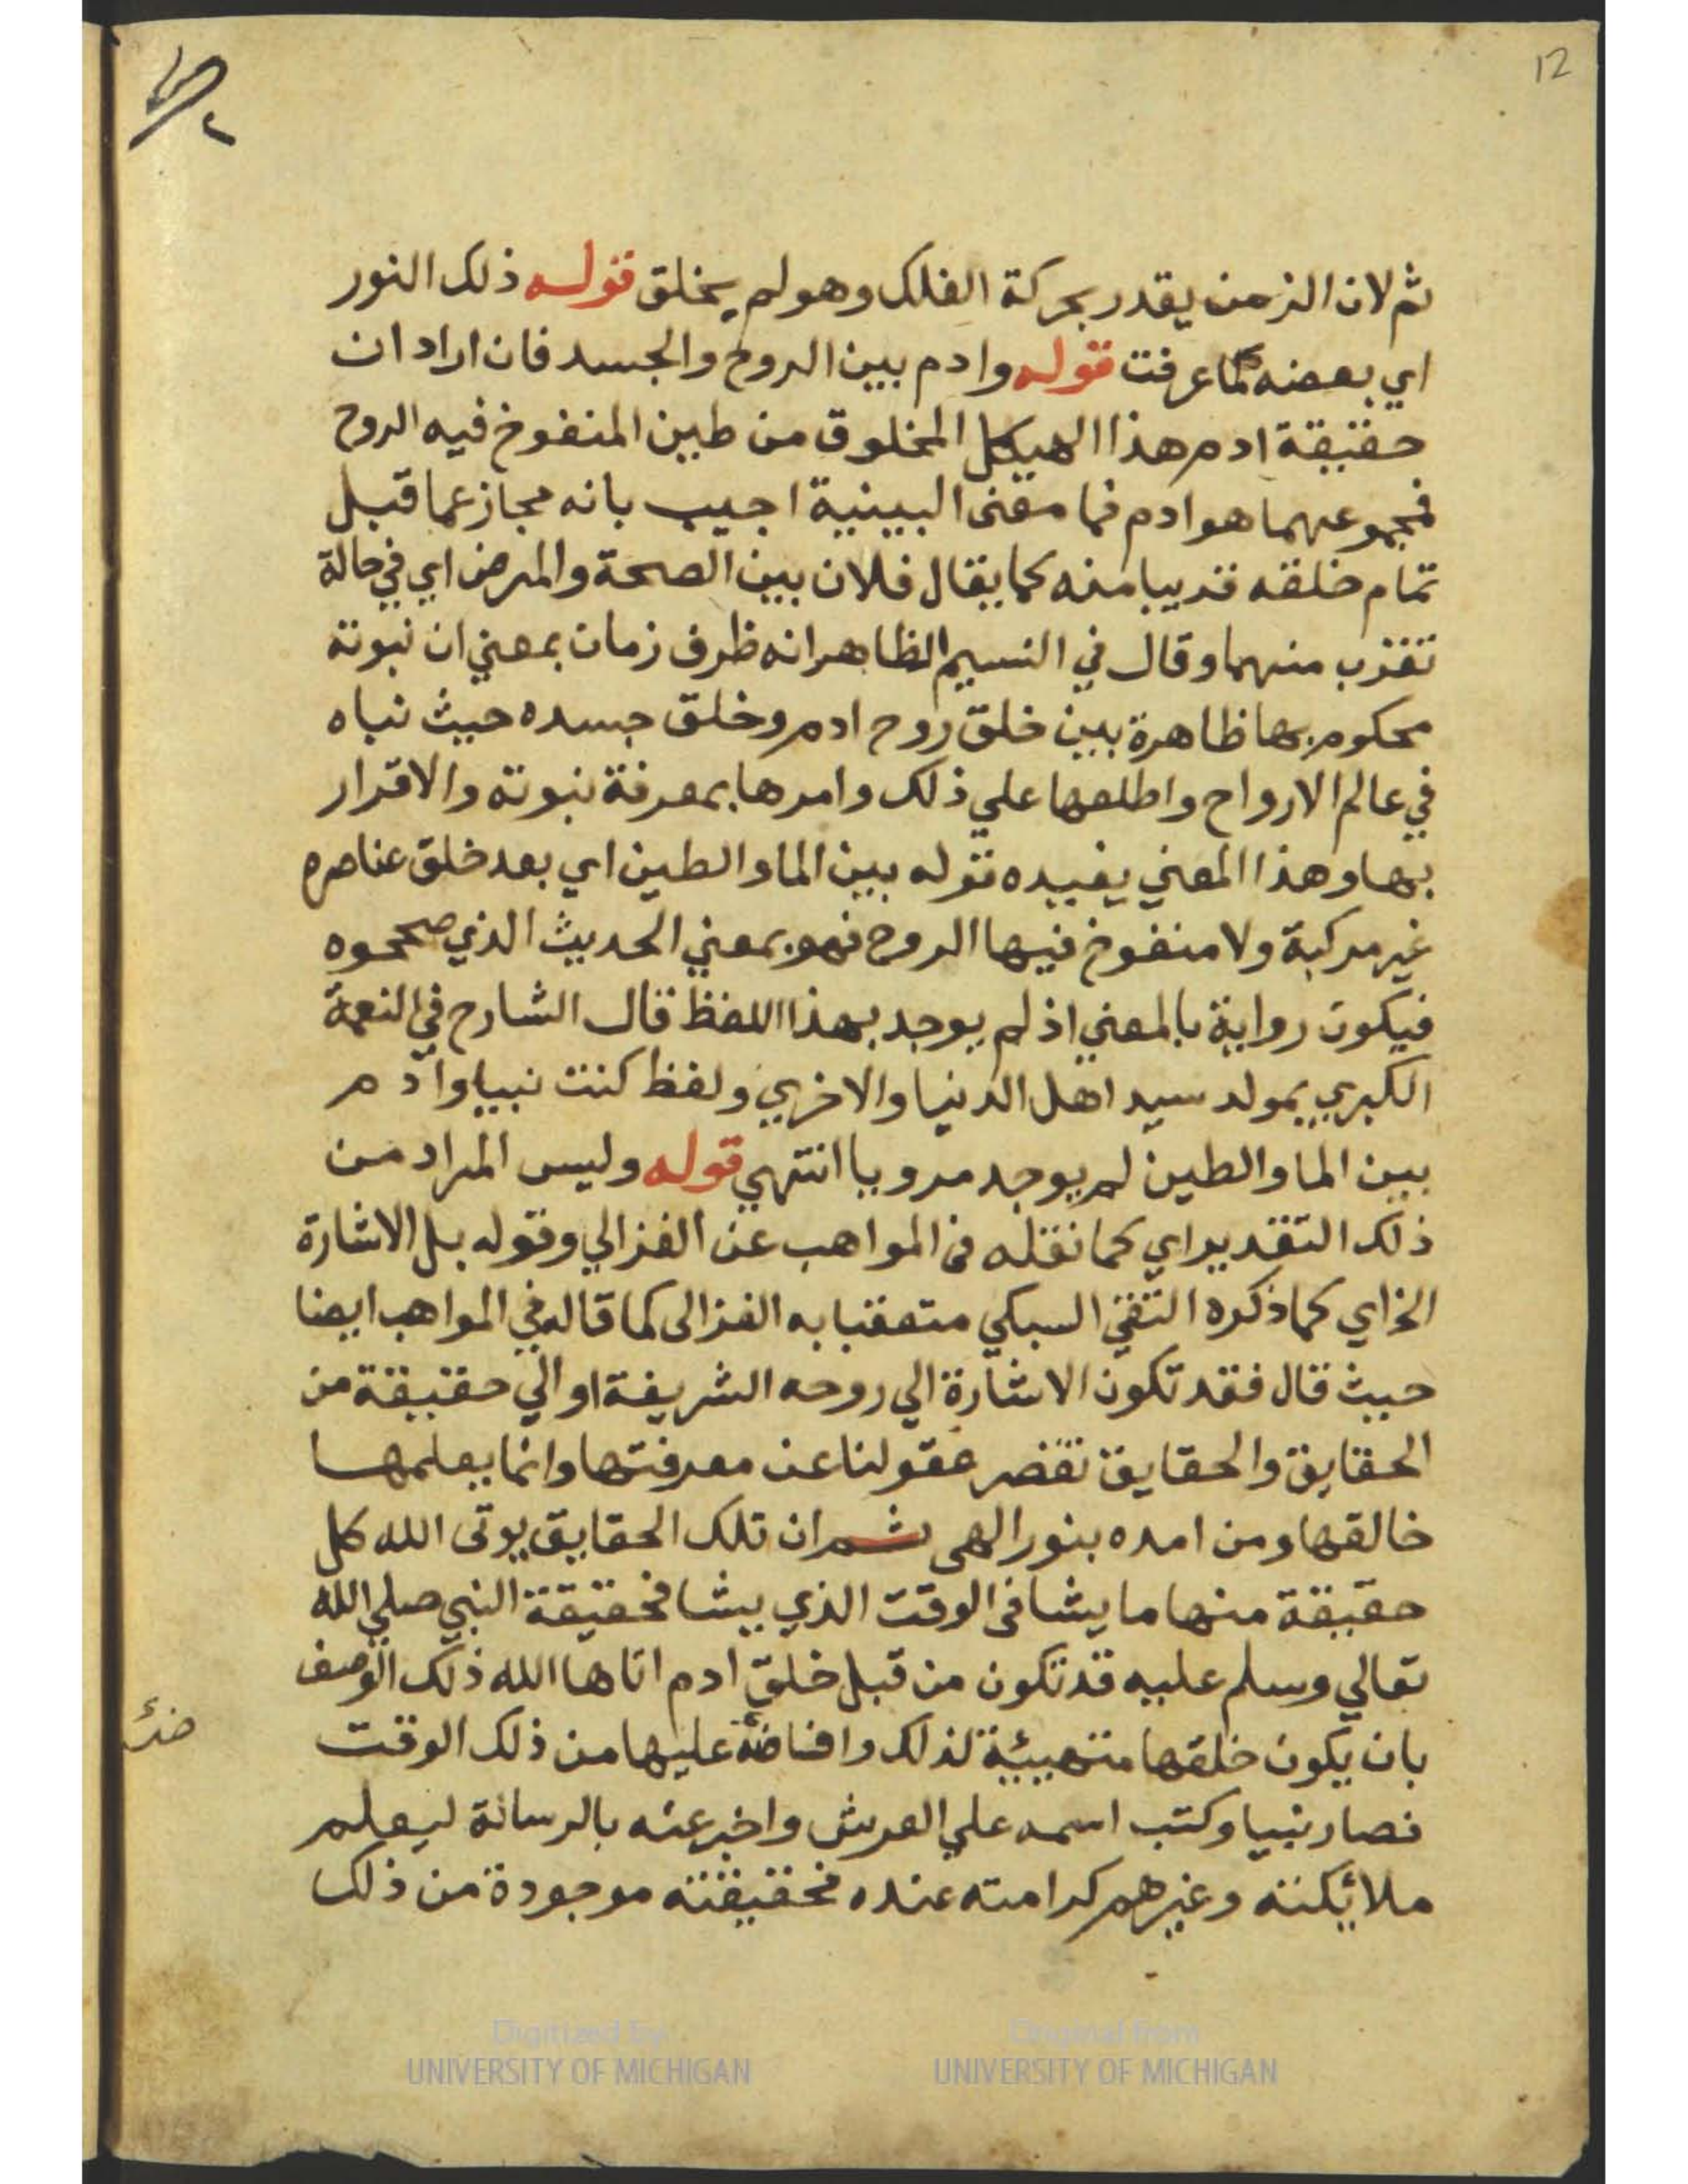 12
ثم لان الزمن يقدر بحركة الفلك وهو لم يخلق قوله ذلك النور
اي بعضه كما عرفت قوله وادم بين الروح والجسد فان اراد ان
حقيقة ادم هذا الهيكل المخلوق من طين المنفوخ فيه الروح
فمجموعهما هو ادم فما معنى البينية اجيب بانه مجاز عما قبل
تمام خلقه قريبا منه كما يقال فلان بين الصحة والمرض اي في حالة
تقرب منهما وقال في النسيم الظاهر انه ظرف زمان بمعني ان نبوته
محكوم بها ظاهرة بين خلق روح ادم وخلق جسده حيث نباه
في عالم الارواح واطلعها علي ذلك وامرها بمعرفة نبوته والاقرار
بها وهذا المعني يفيده قوله بين الما والطين اي بعد خلق عناصره
غير مركبة ولا منفوخ فيها الروح فهو بمعني الحديث الذي صححوه
فيكون رواية بالمعني اذ لم يوجد بهذا اللفظ قال الشارح في النعمة
الكبري بمولد سيد اهل الدنيا والاخري ولفظ كنت نبيا وآدم
بين الما والطين لم يوجد مرويا انتهي قوله وليس المراد من
ذلك التقدير اي كما نقله في المواهب عن الغزالي وقوله بل الاشارة
الخ اي كما ذكره التقي السبكي متعقبا به الغزالى كما قاله في المواهب ايضا
حيث قال فقد تكون الاشارة الي روحه الشريفة او الي حقيقة من
الحقايق والحقايق تقصر عقولنا عن معرفتها وانما يعلمها
خالقها ومن امده بنور الهى ثم ان تلك الحقايق يوتى الله كل
حقيقة منها ما يشا فى الوقت الذي يشا فحقيقة النبي صلي الله
تعالي وسلم عليه قد تكون من قبل خلق ادم اتاها الله ذلك الوصف
بان يكون خلقها متهيئة لذلك وافاضه عليها من ذلك الوقت
فصار نبيا وكتب اسمه علي العرش واخبر عنه بالرسالة ليعلم
ملائكته وغيرهم كرامته عنده فحقيقته موجودة من ذلك
Digitized by
UNIVERSITY OF MICHIGAN
Original from
UNIVERSITY OF MICHIGAN